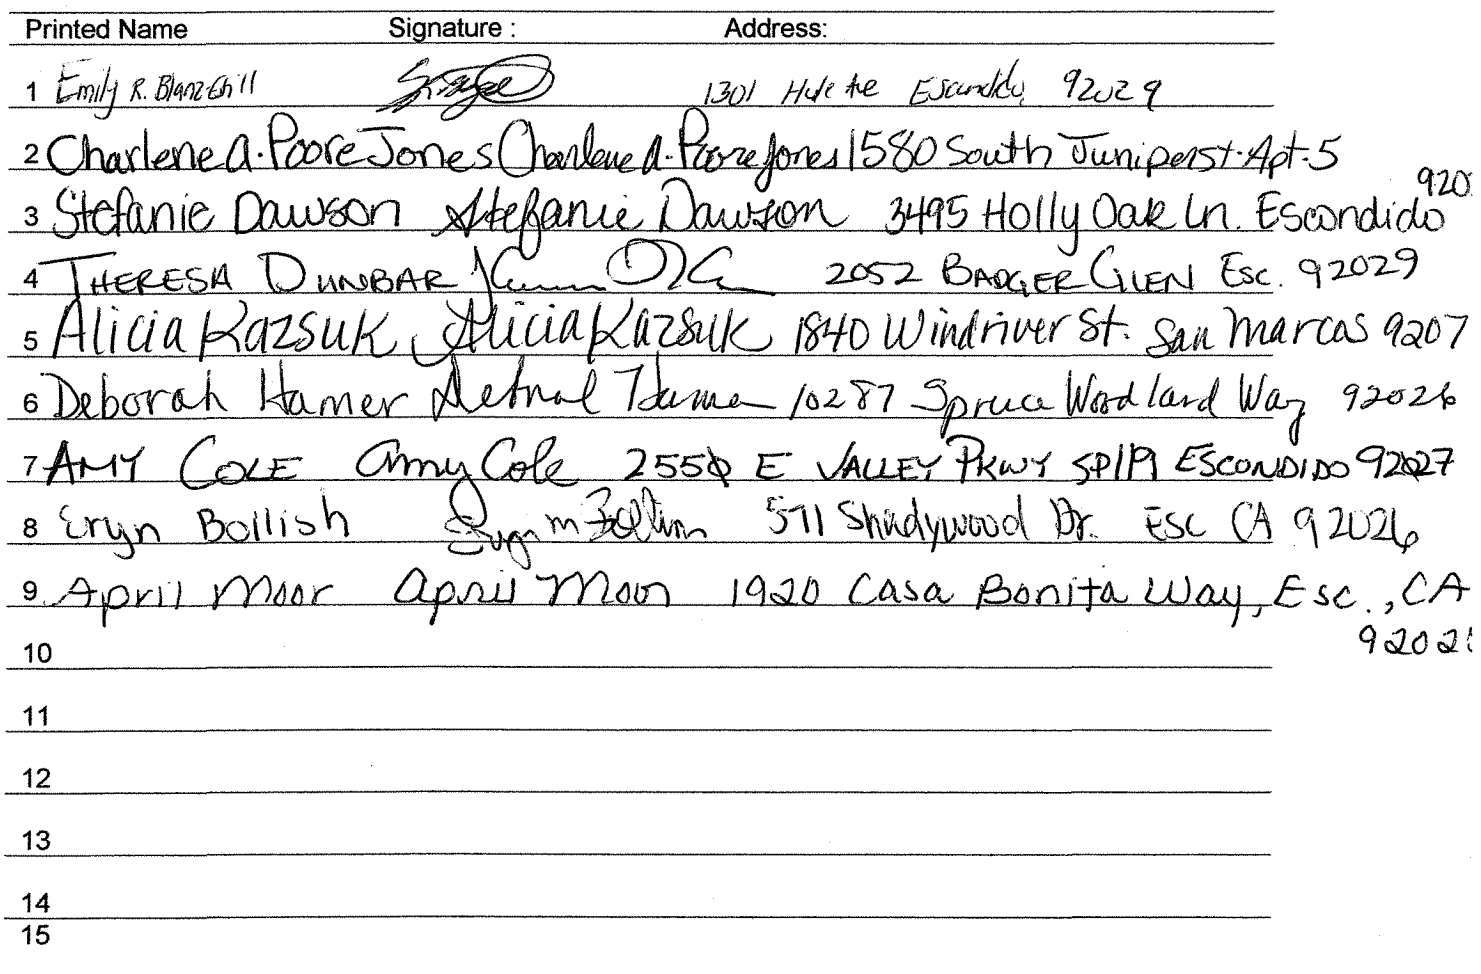 Printed Name Signature : Address:
1 Emily R. 1301 92029
2 Charlene A. Poore Jones Charlene A. Poore Jones 1580 South Juniper St. Apt. 5
920
3 Stefanie Dawson Stefanie Dawson 3495 Holly Oak Ln. Escondido
4 THERESA DUNBAR 2052 BADGER GLEN ESC. 92029
5 Alicia Kazsuk Alicia Kazsuk 1840 Windriver St. San Marcos 9207
6 Deborah Hamer Deborah Hamer 10287 Spruce Woodland Way 92026
7 AMY COLE Amy Cole 2550 E VALLEY PKWY SP119 ESCONDIDO 92027
8 Eryn Bollish 571 Shadywood Dr. ESC CA 92026
9 April Moor April Moor 1920 Casa Bonita Way, Esc., CA
9202
10
11
12
13
14
15